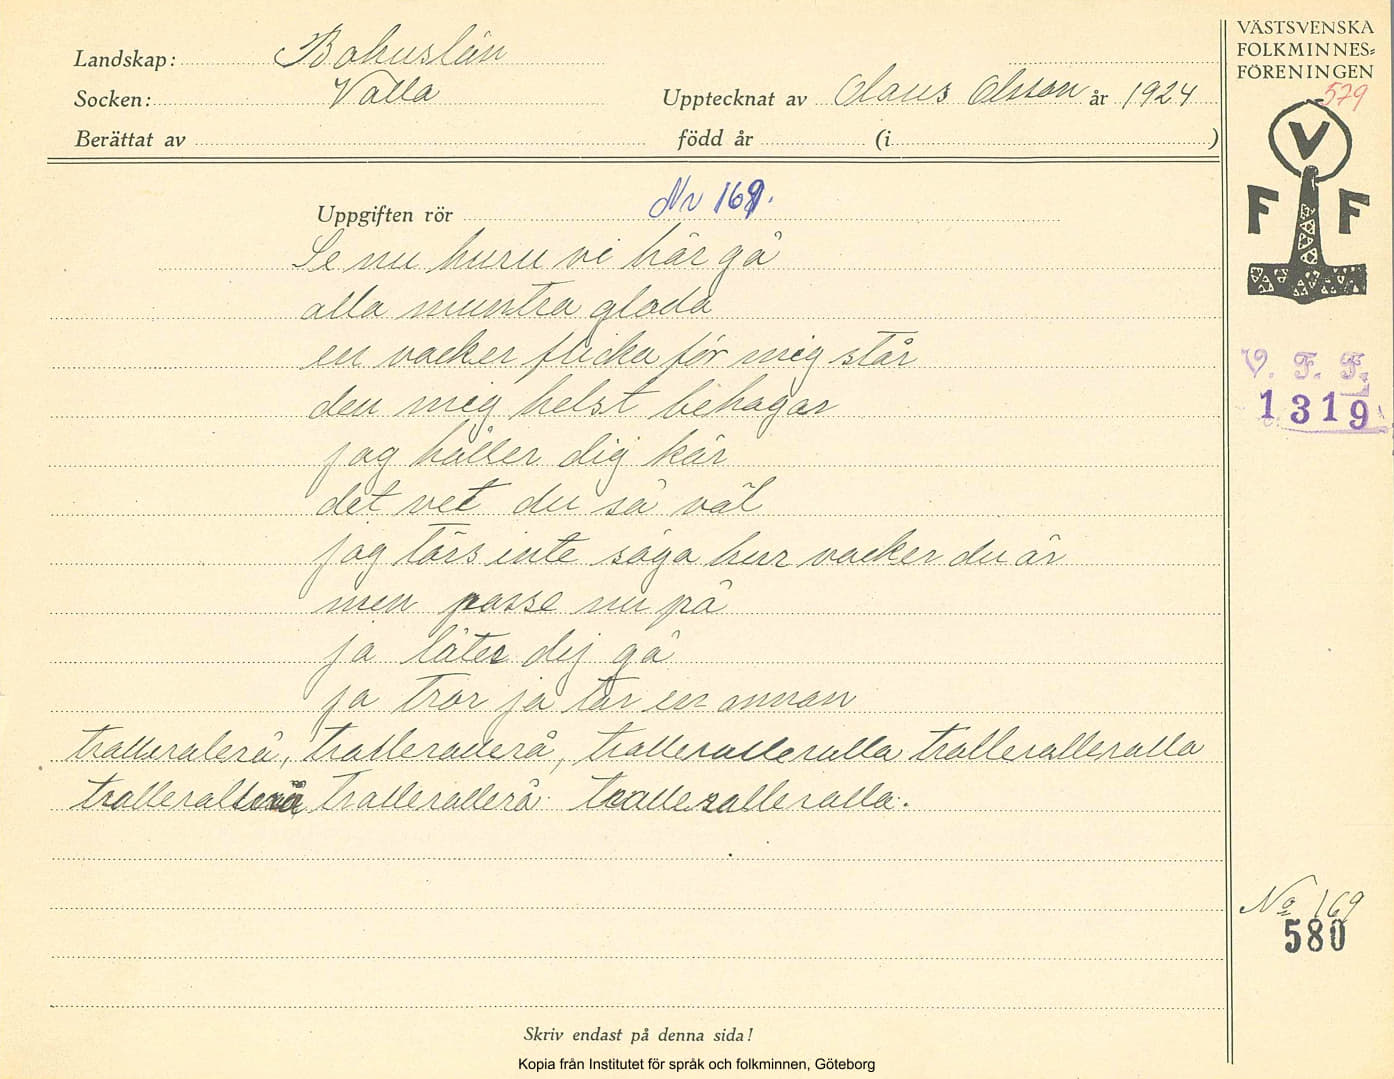 Landskap: Bohuslän
Socken: Valla
Upptecknat av Claus Olsson år 1924
Berättat av
född år (i )
VÄSTSVENSKA
FOLKMINNES=
FÖRENINGEN
579
V
F F
Uppgiften rör Nr 169.
Se nu huru vi här gå
alla muntra glada
en vacker flicka för mig står
den mig helst behagar
jag håller dig kär
det vet du så väl
jag törs inte säga hur vacker du är
men passe nu på
ja låter dej gå
ja tror ja tar en annan
tralleralerå, tralleralerå, trallerallerulla tralleralleralla
trallerallerå trallerallerå tralleralleralla.
V. F. F.
1319
No 169
580
Skriv endast på denna sida!
Kopia från Institutet för språk och folkminnen, Göteborg